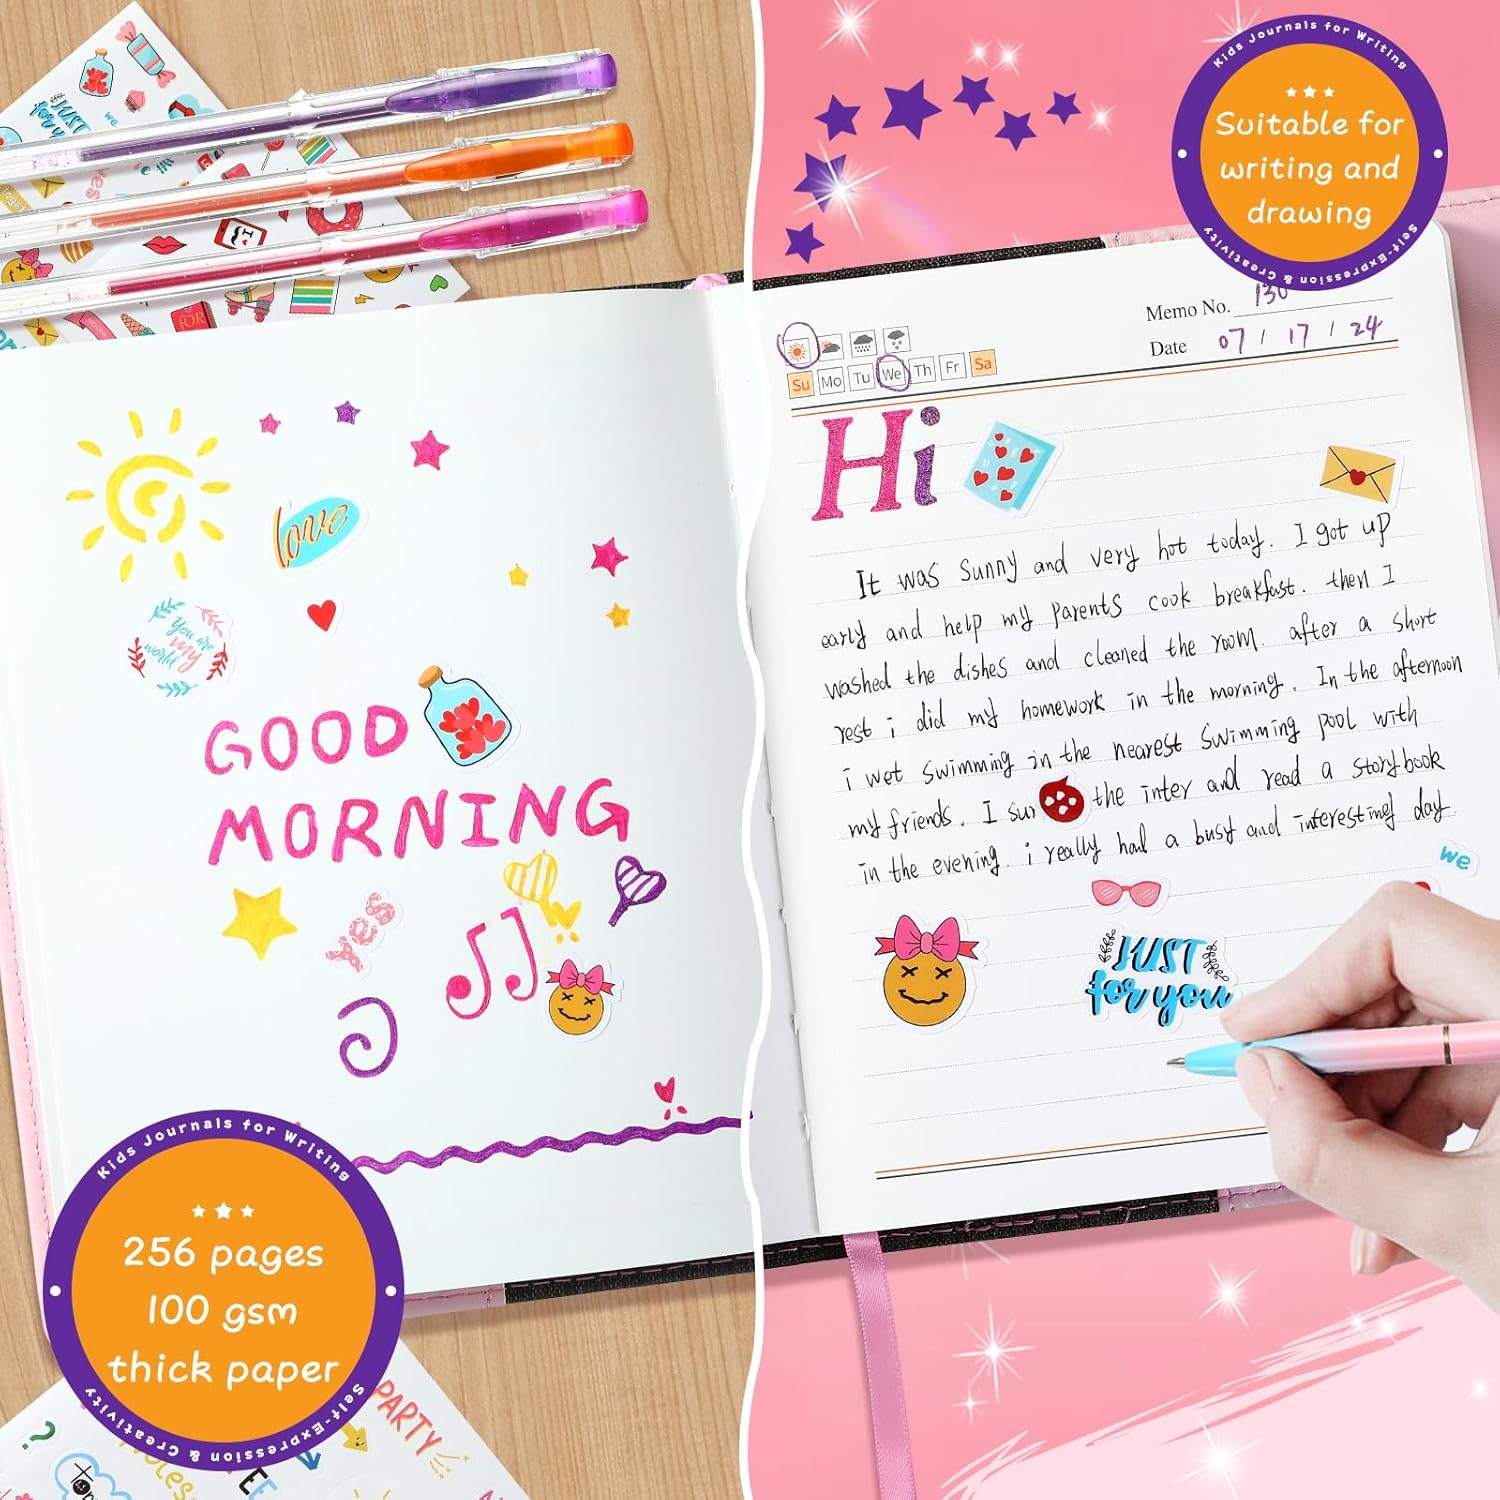 Kids Journals for Writing
Suitable for
writing and
drawing
Self-Expression & Creativity
JUST
for you
we
love
You are
my
world
GOOD
MORNING
yes
Kids Journals for Writing
256 pages
100 gsm
thick paper
Self-Expression & Creativity
PARTY
?
Memo No. 130
Date 07 / 17 / 24
Su Mo Tu We Th Fr Sa
Hi
It was sunny and very hot today. I got up
early and help my parents cook breakfast. then I
washed the dishes and cleaned the room. after a short
rest i did my homework in the morning. In the afternoon
i wet swimming in the nearest swimming pool with
my friends. I sur the inter and read a storybook
in the evening. i really had a busy and interesting day
we
JUST
for you